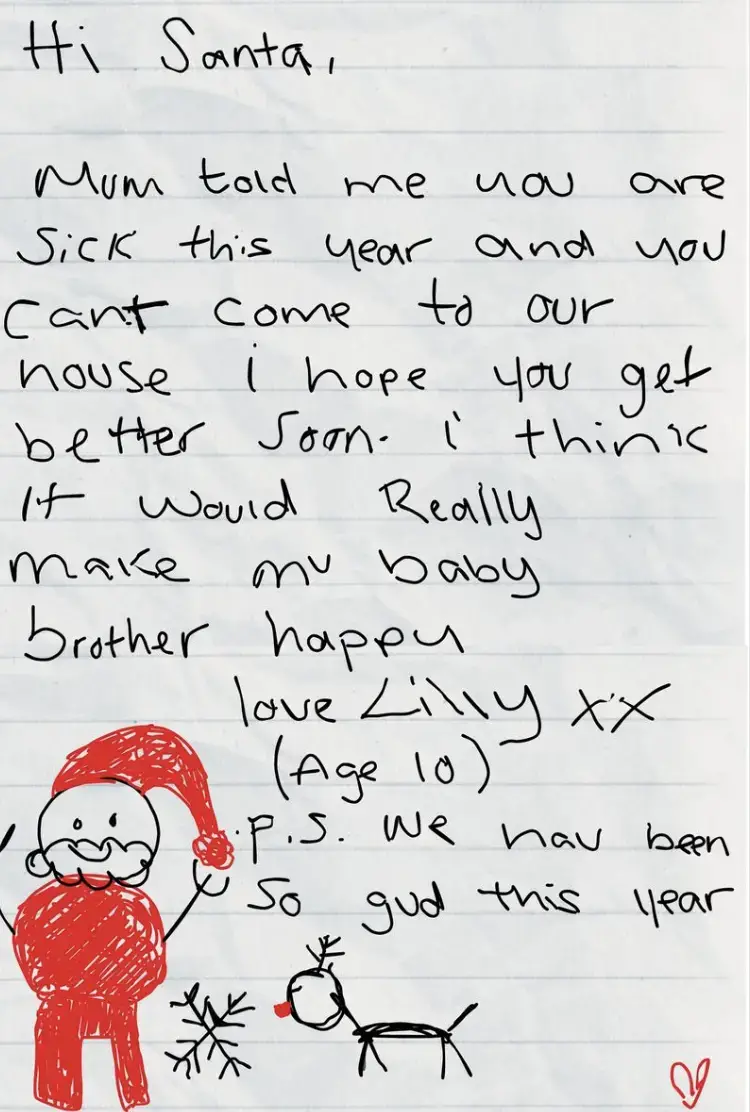 Hi Santa,
Mum told me you are
sick this year and you
cant come to our
house i hope you get
better soon. i think
it would Really
make my baby
brother happy
love Lilly xx
(Age 10)
P.S. We hav been
so gud this year